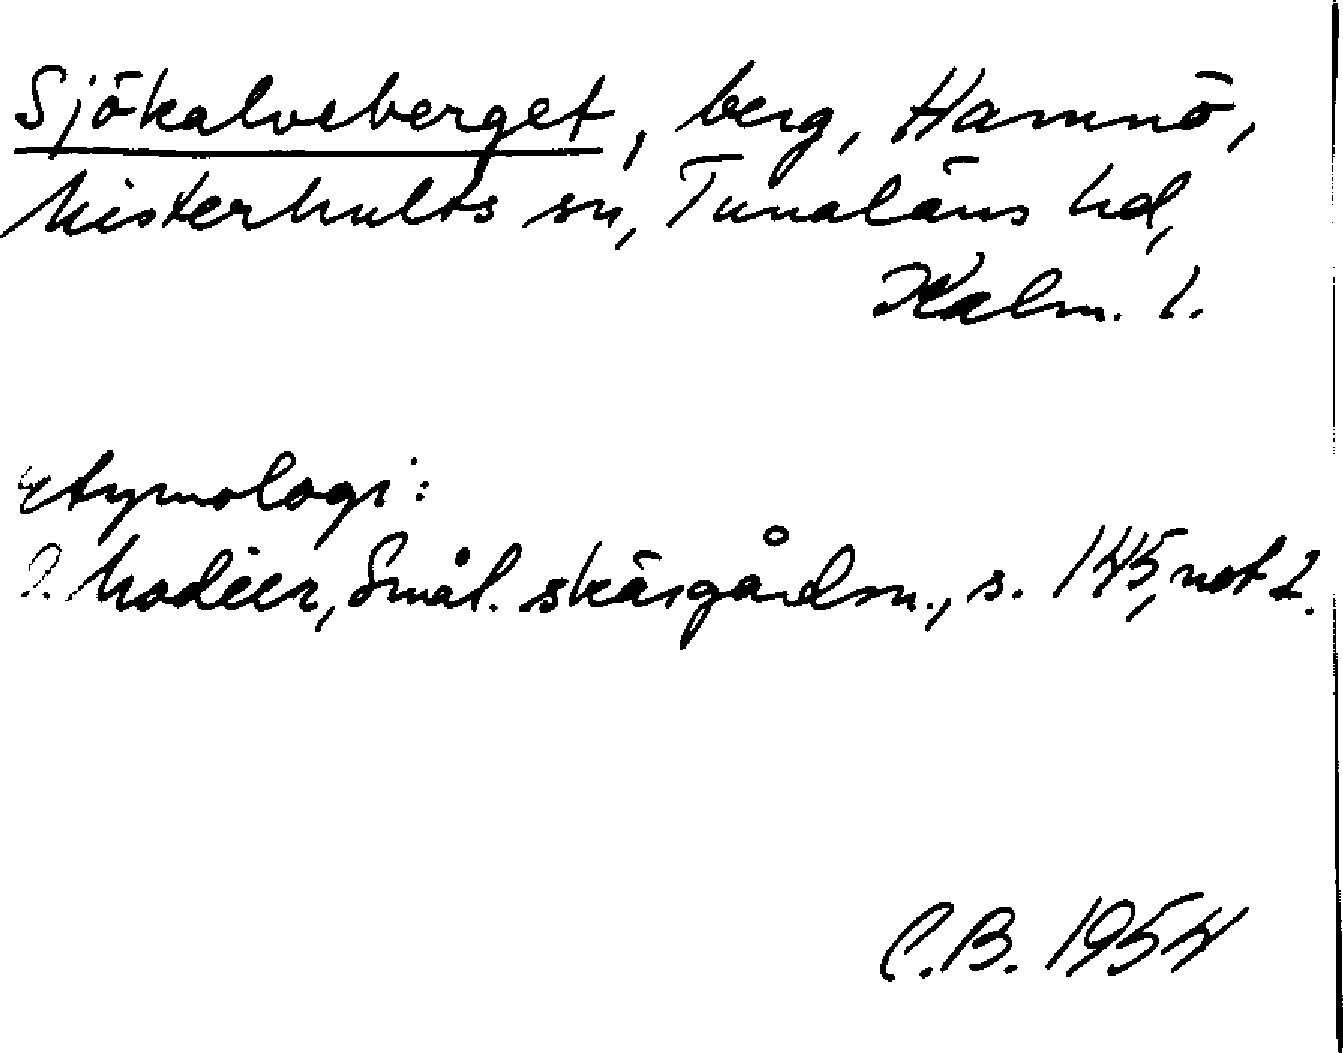 Sjökalveberget, berg, Hamnö,
Misterhults sn, Tunaläns hd,
Kalm. l.
Etymologi:
I. Modéer, Smål. skärgårdsn., s. 145, not 2.
C.B. 1954